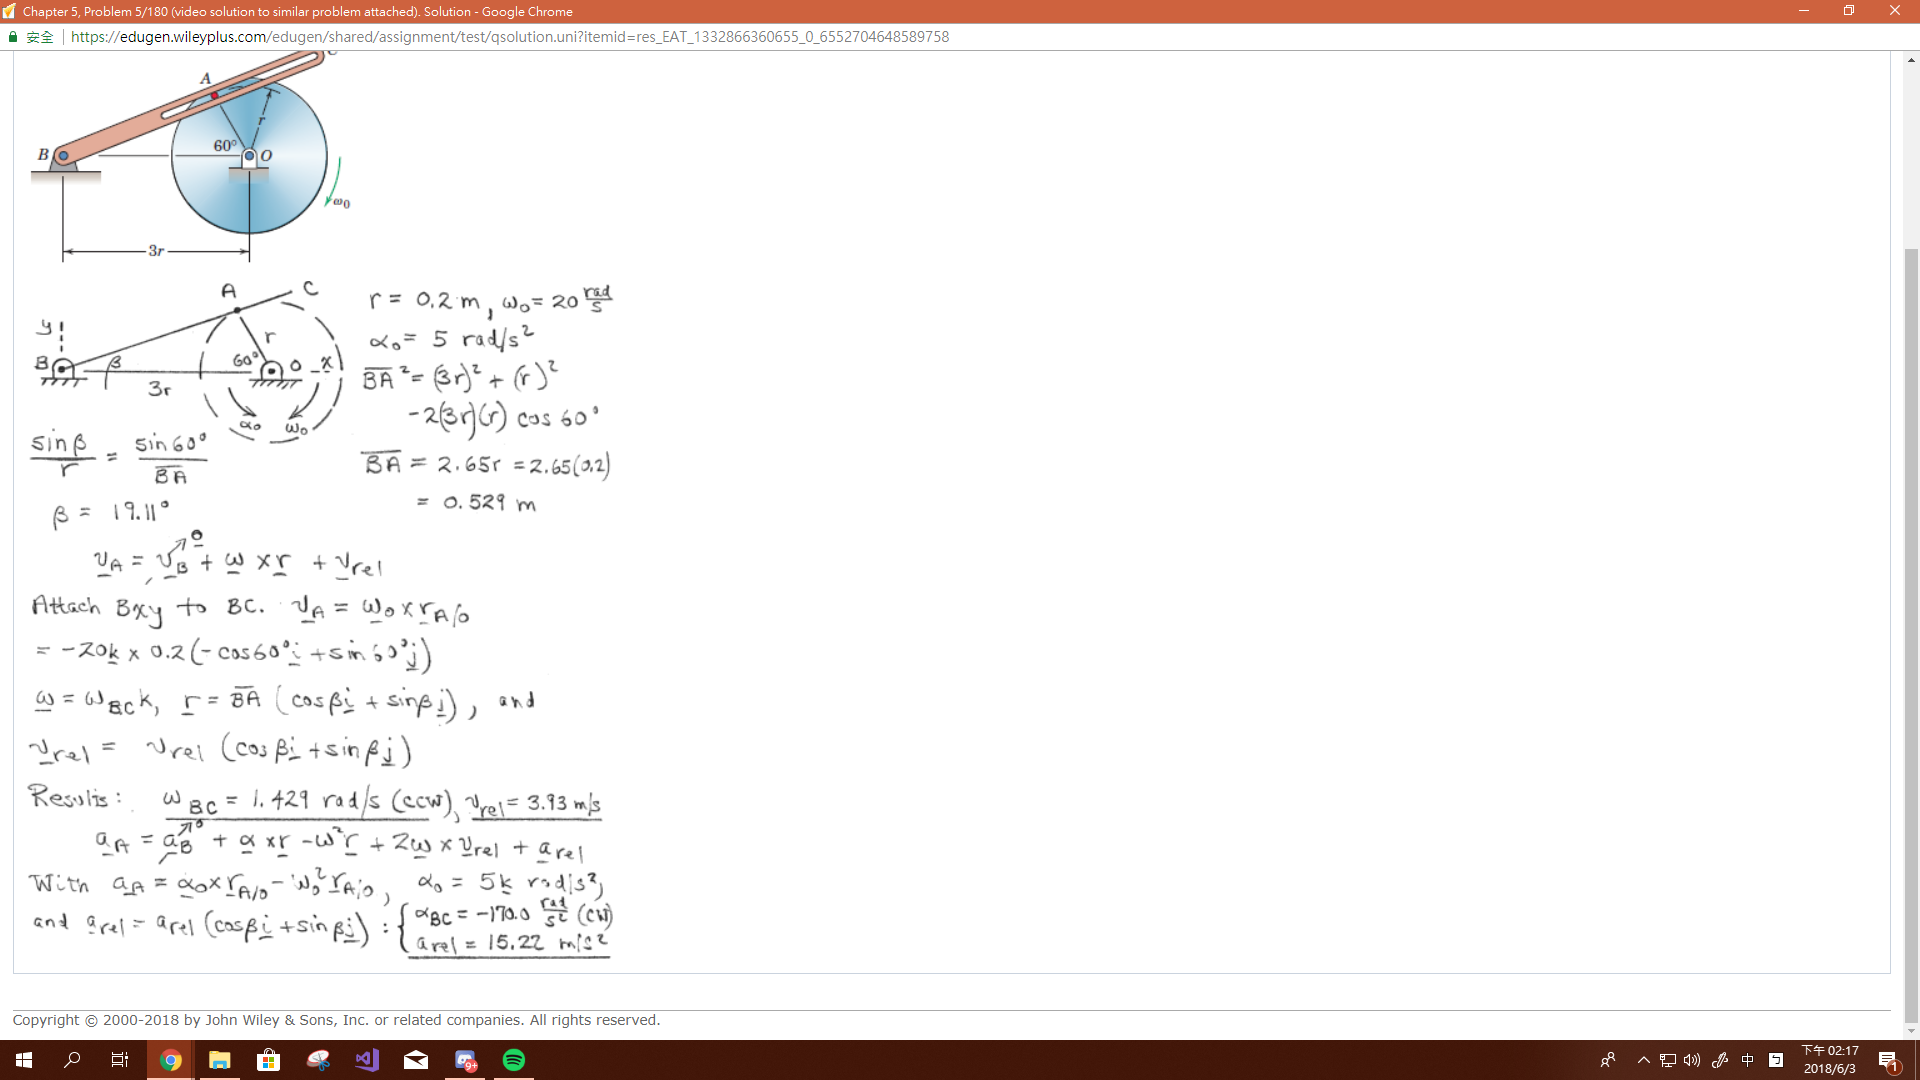 Chapter 5, Problem 5/180 (video solution to similar problem attached). Solution - Google Chrome
安全 | https://edugen.wileyplus.com/edugen/shared/assignment/test/qsolution.uni?itemid=res_EAT_1332866360655_0_6552704648589758
A
r
60°
B
O
ω0
3r
A C
r = 0.2 m, ω₀ = 20 rad/s
y
r
α₀ = 5 rad/s²
B β 60° O x
3r
B̅A̅² = (3r)² + (r)²
- 2(3r)(r) cos 60°
α₀ ω₀
sin β / r = sin 60° / B̅A̅
B̅A̅ = 2.65r = 2.65(0.2)
= 0.529 m
β = 19.11°
v_A = v_B↗0 + ω × r + v_rel
Attach Bxy to BC. v_A = ω₀ × r_A/O
= -20k × 0.2(-cos60°i + sin60°j)
ω = ω_BC k, r = B̅A̅ (cosβi + sinβj), and
v_rel = v_rel (cosβi + sinβj)
Results: ω_BC = 1.429 rad/s (CCW), v_rel = 3.93 m/s
a_A = a_B↗0 + α × r - ω²r + 2ω × v_rel + a_rel
With a_A = α₀ × r_A/O - ω₀² r_A/O, α₀ = 5k rad/s²,
and a_rel = a_rel (cosβi + sinβj) : { α_BC = -170.0 rad/s² (CW)
a_rel = 15.22 m/s²
Copyright © 2000-2018 by John Wiley & Sons, Inc. or related companies. All rights reserved.
9+
中
下午 02:17
2018/6/3
1